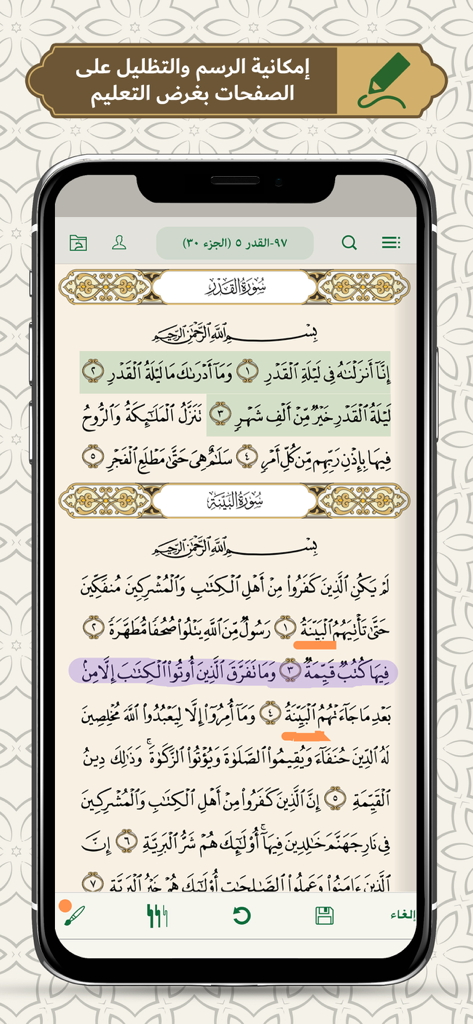 إمكانية الرسم والتظليل على
الصفحات بغرض التعليم
٩٧-القدر ٥ (الجزء ٣٠)
سُورَةُ القَدْرِ
بِسْمِ اللَّهِ الرَّحْمَٰنِ الرَّحِيمِ
إِنَّآ أَنزَلْنَٰهُ فِى لَيْلَةِ ٱلْقَدْرِ ١ وَمَآ أَدْرَىٰكَ مَا لَيْلَةُ ٱلْقَدْرِ ٢
لَيْلَةُ ٱلْقَدْرِ خَيْرٌ مِّنْ أَلْفِ شَهْرٍ ٣ تَنَزَّلُ ٱلْمَلَٰٓئِكَةُ وَٱلرُّوحُ
فِيهَا بِإِذْنِ رَبِّهِم مِّن كُلِّ أَمْرٍ ٤ سَلَٰمٌ هِىَ حَتَّىٰ مَطْلَعِ ٱلْفَجْرِ ٥
سُورَةُ البَيِّنَةِ
بِسْمِ اللَّهِ الرَّحْمَٰنِ الرَّحِيمِ
لَمْ يَكُنِ ٱلَّذِينَ كَفَرُوا۟ مِنْ أَهْلِ ٱلْكِتَٰبِ وَٱلْمُشْرِكِينَ مُنفَكِّينَ
حَتَّىٰ تَأْتِيَهُمُ ٱلْبَيِّنَةُ ١ رَسُولٌ مِّنَ ٱللَّهِ يَتْلُوا۟ صُحُفًا مُّطَهَّرَةً ٢
فِيهَا كُتُبٌ قَيِّمَةٌ ٣ وَمَا تَفَرَّقَ ٱلَّذِينَ أُوتُوا۟ ٱلْكِتَٰبَ إِلَّا مِنۢ
بَعْدِ مَا جَآءَتْهُمُ ٱلْبَيِّنَةُ ٤ وَمَآ أُمِرُوٓا۟ إِلَّا لِيَعْبُدُوا۟ ٱللَّهَ مُخْلِصِينَ
لَهُ ٱلدِّينَ حُنَفَآءَ وَيُقِيمُوا۟ ٱلصَّلَوٰةَ وَيُؤْتُوا۟ ٱلزَّكَوٰةَ ۚ وَذَٰلِكَ دِينُ
ٱلْقَيِّمَةِ ٥ إِنَّ ٱلَّذِينَ كَفَرُوا۟ مِنْ أَهْلِ ٱلْكِتَٰبِ وَٱلْمُشْرِكِينَ
فِى نَارِ جَهَنَّمَ خَٰلِدِينَ فِيهَآ ۚ أُو۟لَٰٓئِكَ هُمْ شَرُّ ٱلْبَرِيَّةِ ٦ إِنَّ
ٱلَّذِينَ ءَامَنُوا۟ وَعَمِلُوا۟ ٱلصَّٰلِحَٰتِ أُو۟لَٰٓئِكَ هُمْ خَيْرُ ٱلْبَرِيَّةِ ٧
إلغاء